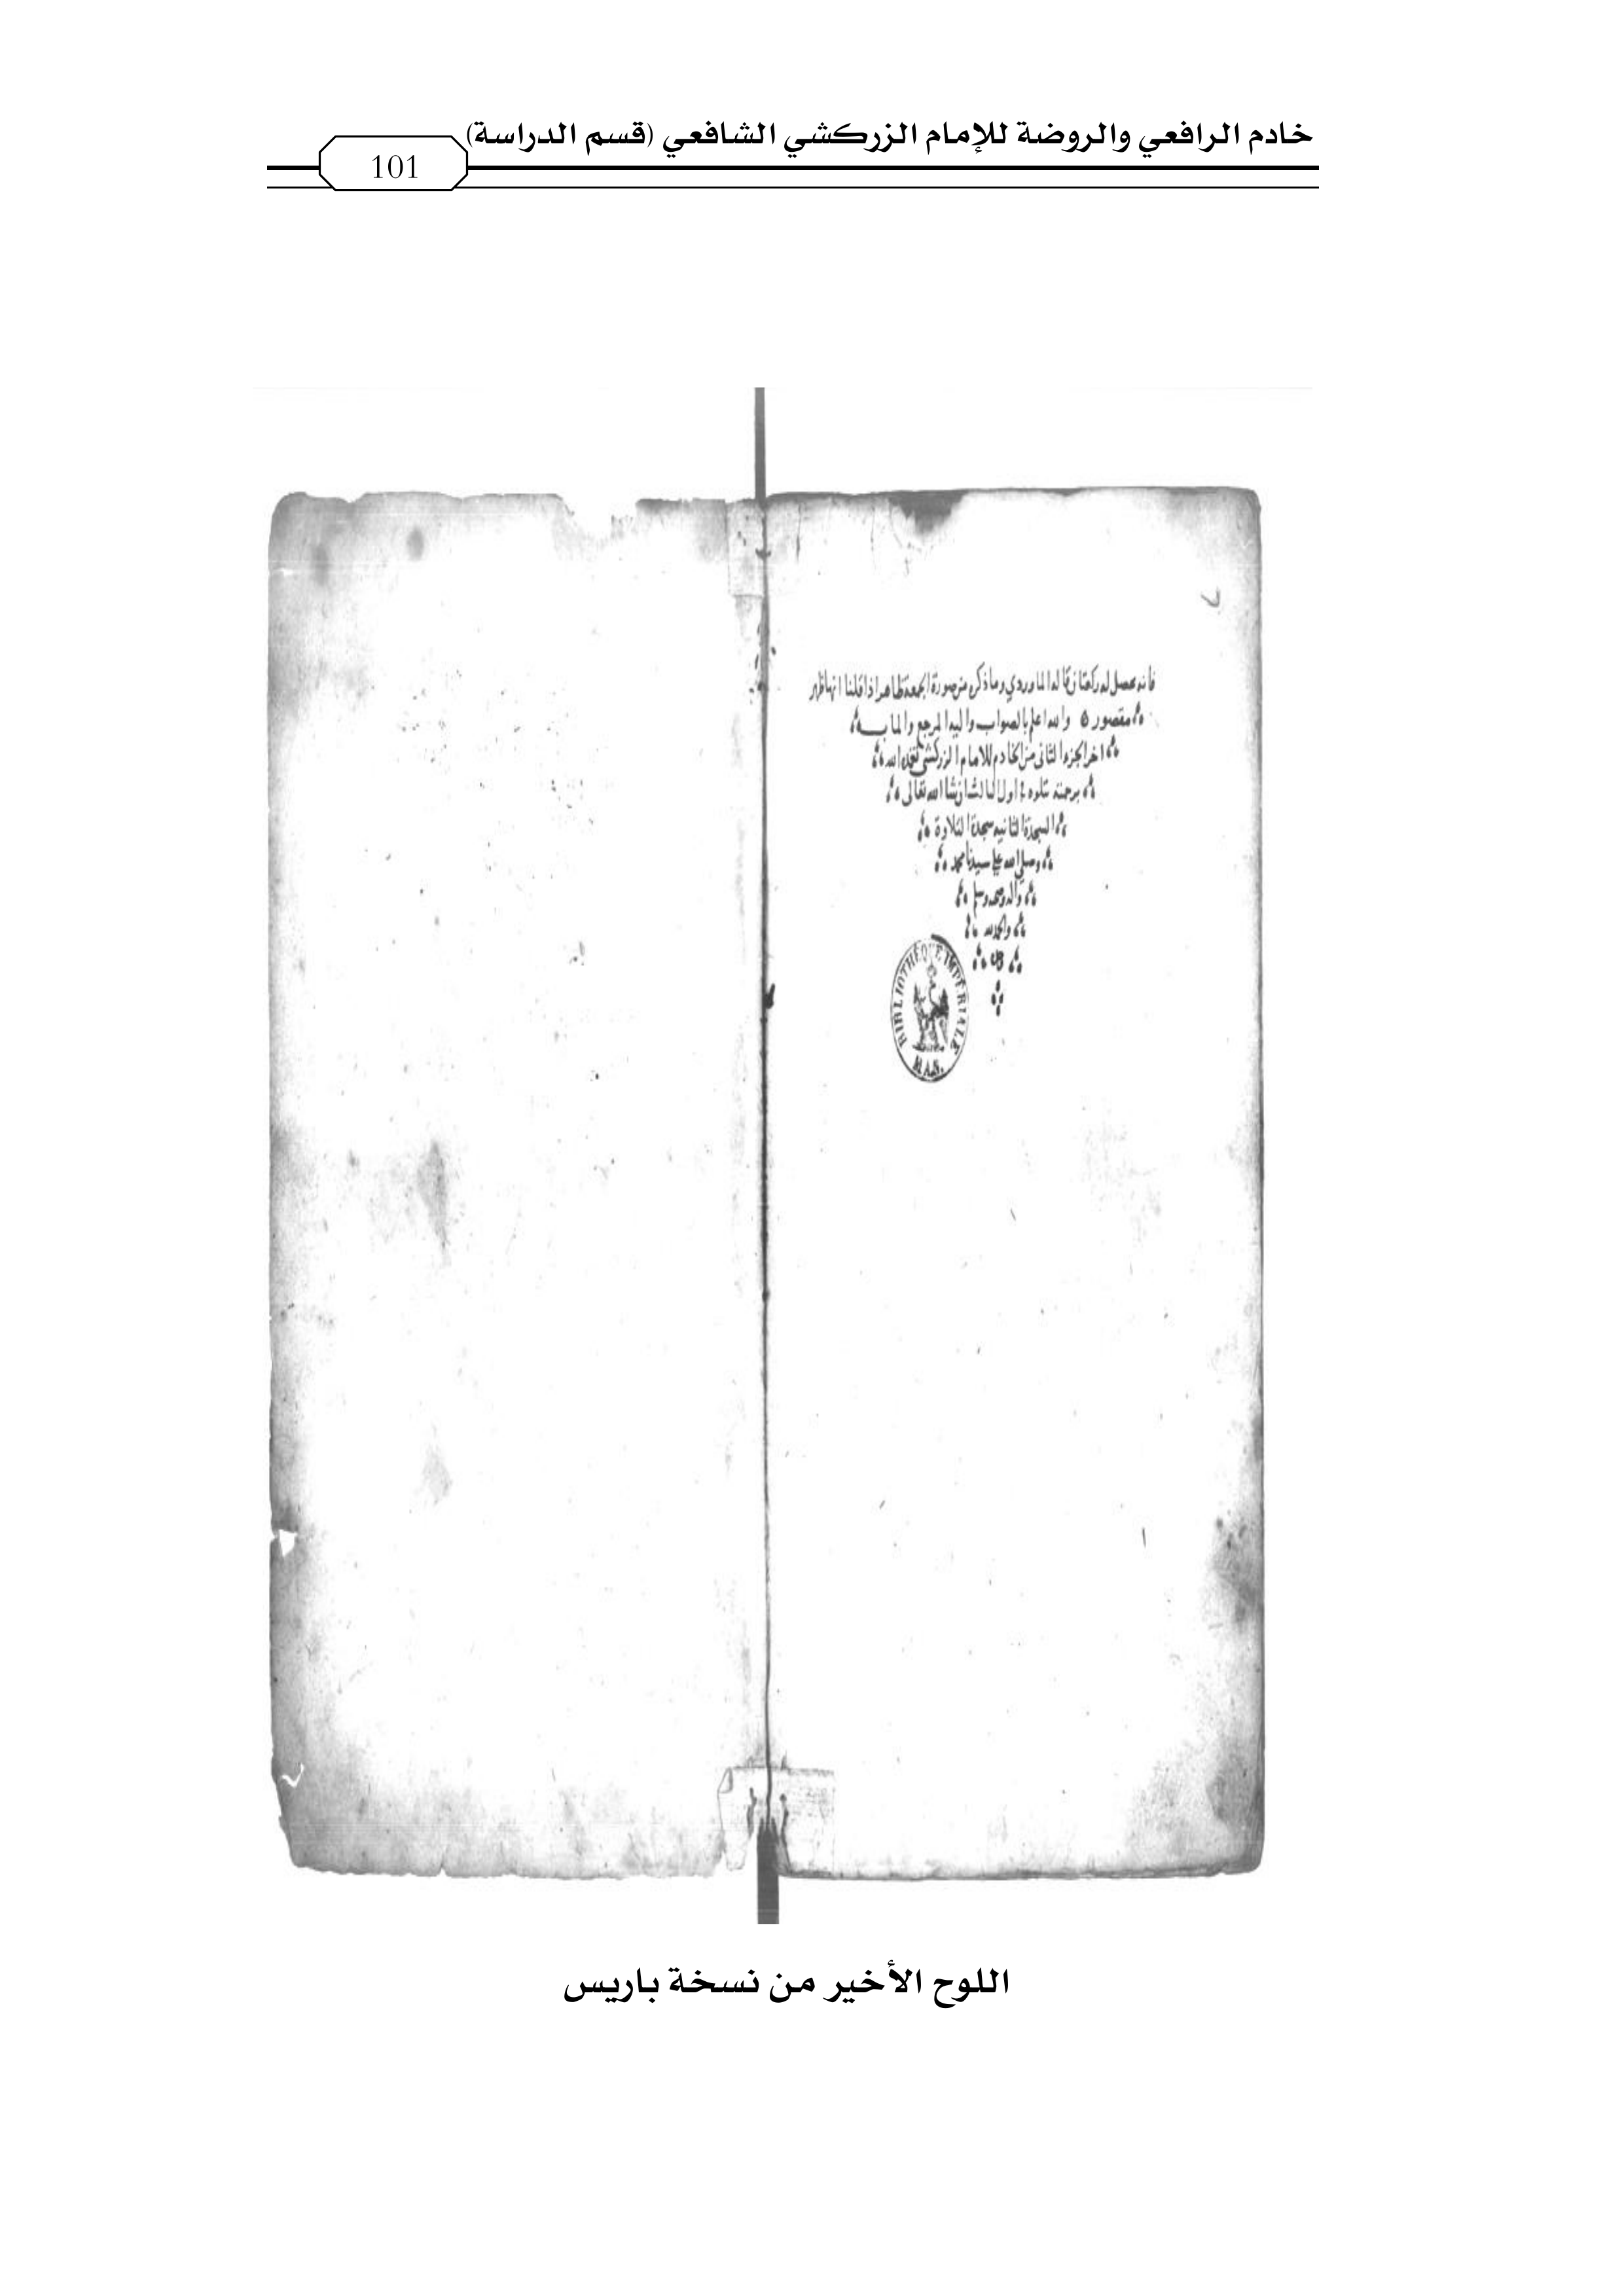 خادم الرافعي والروضة للإمام الزركشي الشافعي (قسم الدراسة)
101
فانه يحصل له ركعتان قاله الماوردي وما ذكره من صورة الجمعة ظاهر اذا قلنا انها ظهر
مقصورة والله اعلم بالصواب واليه المرجع والماب
اخر الجزء الثاني من الخادم للامام الزركشي تغمده الله
برحمته يتلوه في اول الثالث ان شا الله تعالى
السجدة الثانيه سجدة التلاوة
وصلى الله على سيدنا محمد
واله وصحبه وسلم
والحمد لله
BIBLIOTHÈQUE IMPÉRIALE
MAN.
اللوح الأخير من نسخة باريس